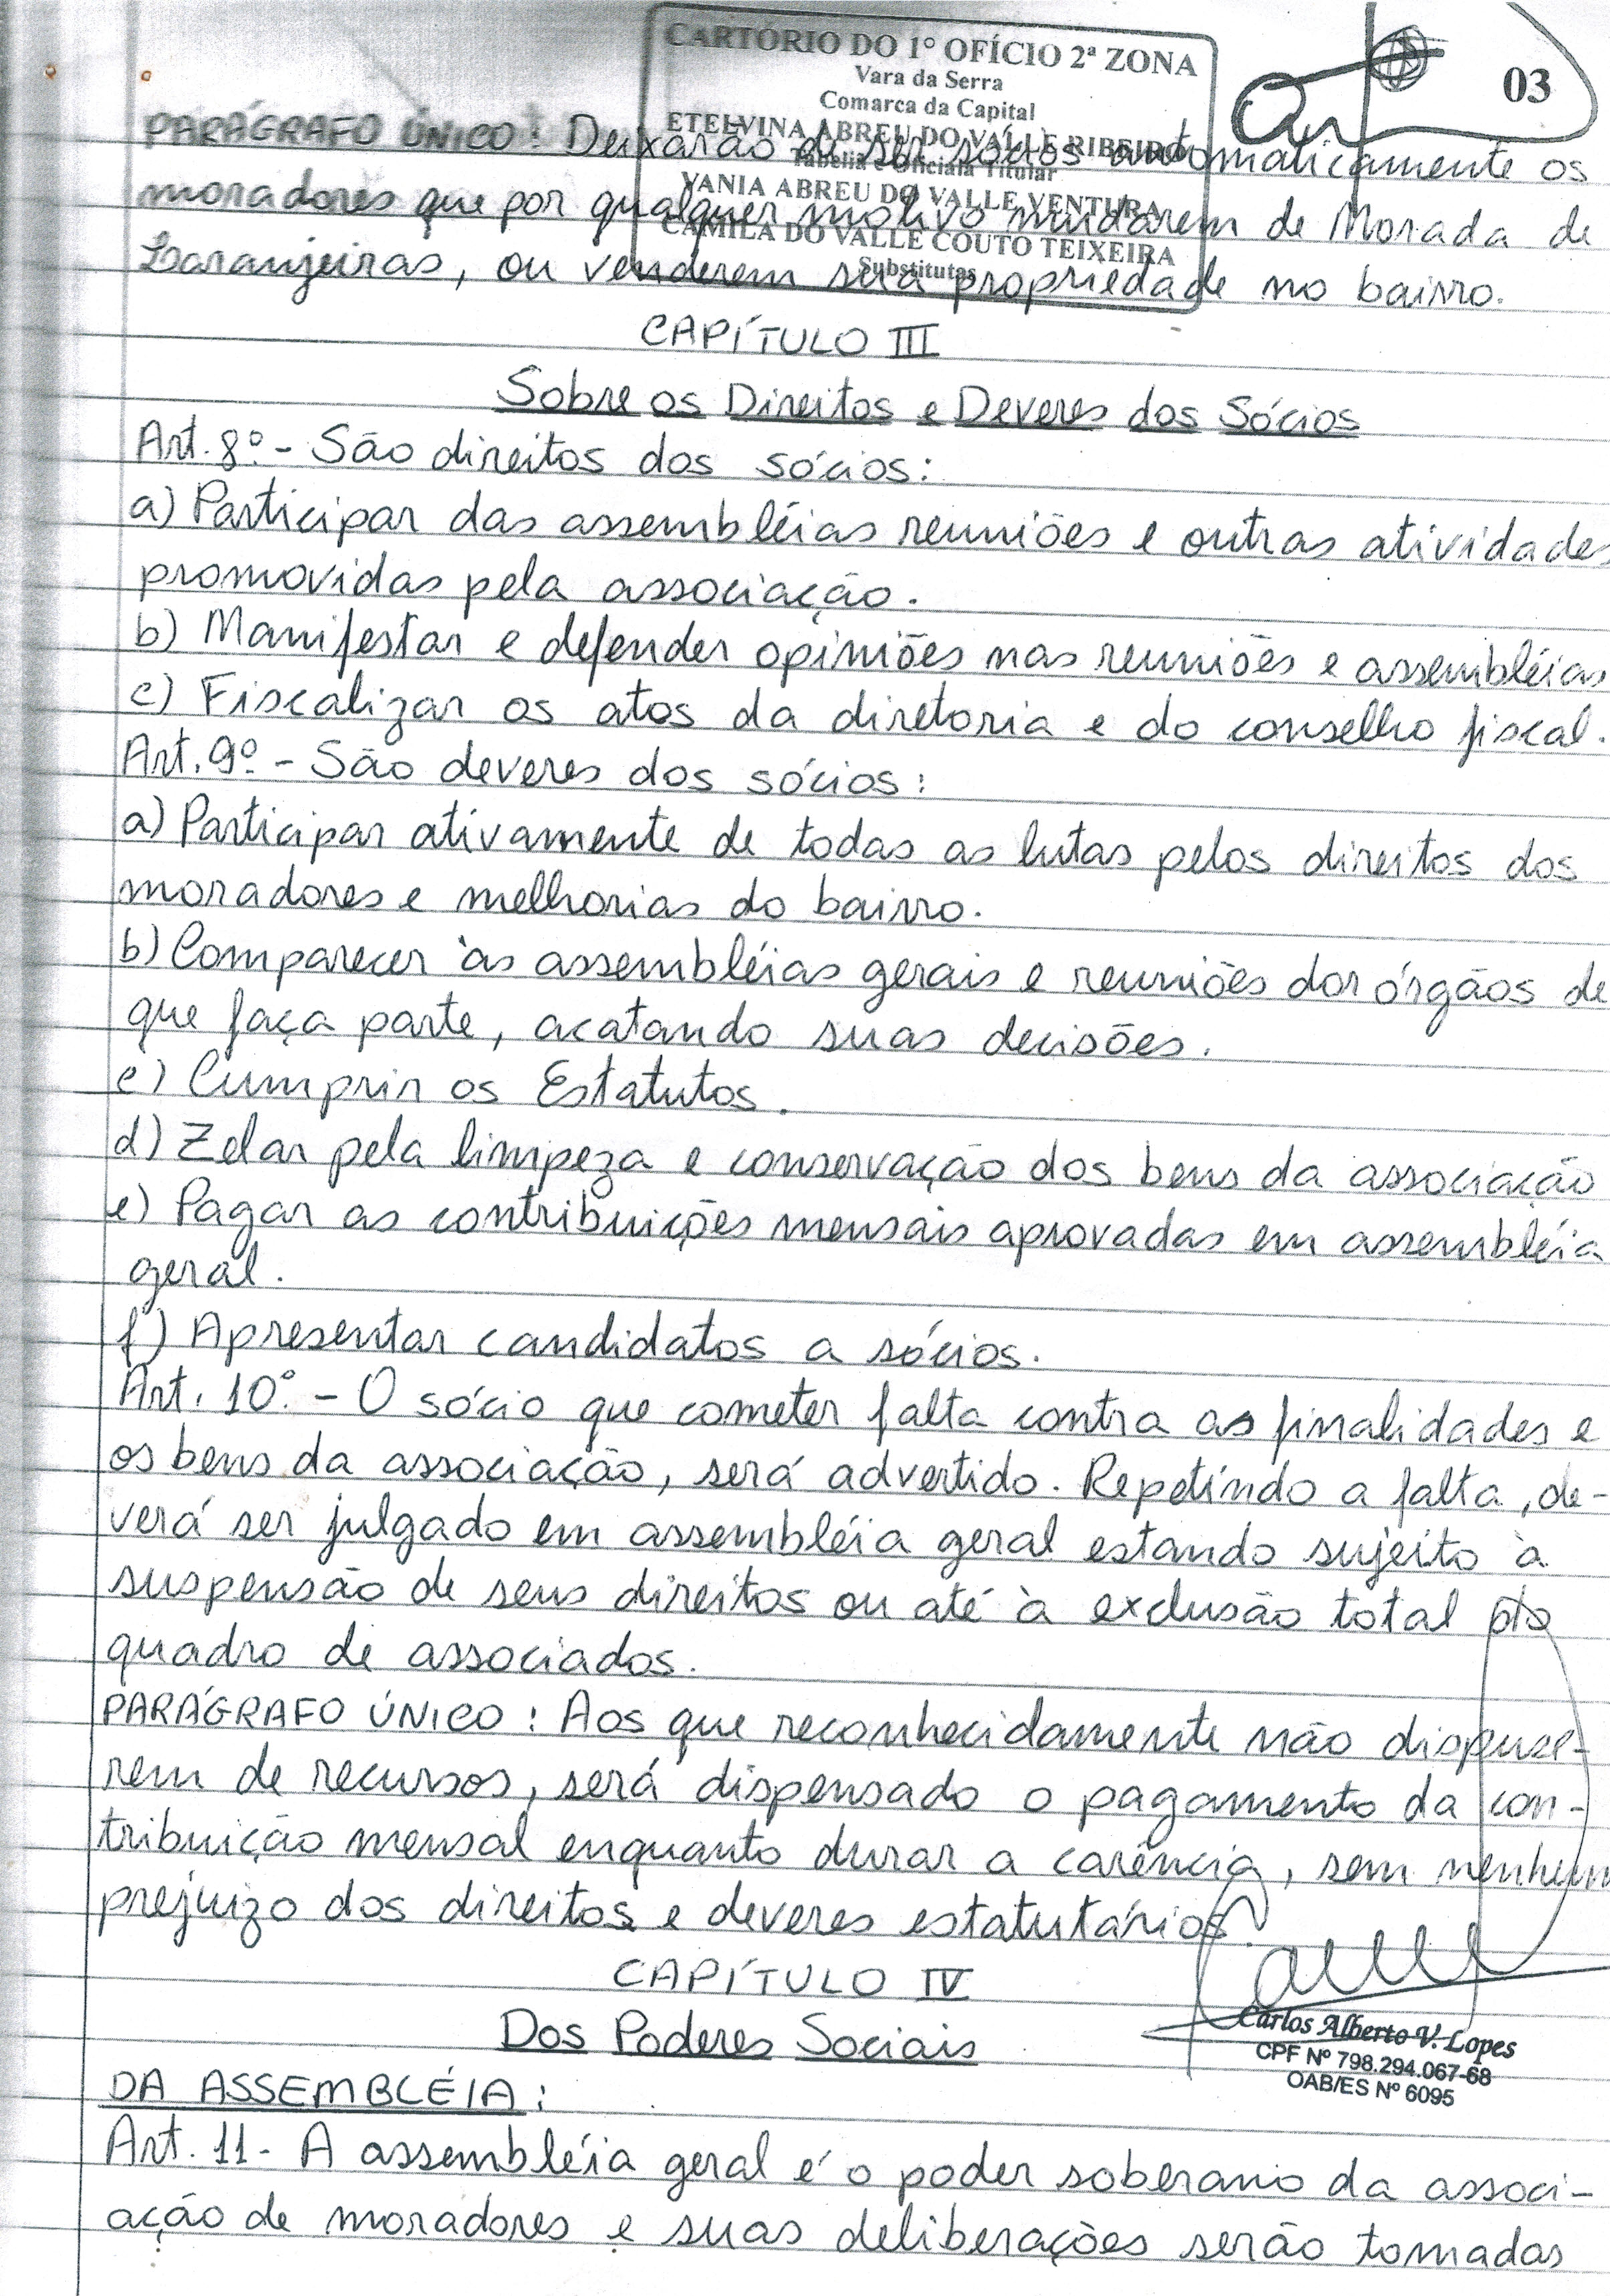 CARTÓRIO DO 1º OFÍCIO 2ª ZONA
Vara da Serra
Comarca da Capital
ETELVINA ABREU DO VALLE RIBEIRO
Tabeliã e Oficiala Titular
VANIA ABREU DO VALLE VENTURA
CAMILA DO VALLE COUTO TEIXEIRA
Substitutas
03
PARÁGRAFO ÚNICO: Deixarão de ser sócios automaticamente os
moradores que por qualquer motivo mudarem de Morada de
Laranjeiras, ou venderem sua propriedade no bairro.
CAPÍTULO III
Sobre os Direitos e Deveres dos Sócios
Art. 8º - São direitos dos sócios:
a) Participar das assembléias reuniões e outras atividades
promovidas pela associação.
b) Manifestar e defender opiniões nas reuniões e assembléias
c) Fiscalizar os atos da diretoria e do conselho fiscal.
Art. 9º - São deveres dos sócios:
a) Participar ativamente de todas as lutas pelos direitos dos
moradores e melhorias do bairro.
b) Comparecer às assembléias gerais e reuniões dos órgãos de
que faça parte, acatando suas decisões.
c) Cumprir os Estatutos.
d) Zelar pela limpeza e conservação dos bens da associação
e) Pagar as contribuições mensais aprovadas em assembléia
geral.
f) Apresentar candidatos a sócios.
Art. 10º - O sócio que cometer falta contra as finalidades e
os bens da associação, será advertido. Repetindo a falta, de-
verá ser julgado em assembléia geral estando sujeito à
suspensão de seus direitos ou até à exclusão total do
quadro de associados.
PARÁGRAFO ÚNICO: Aos que reconhecidamente não dispuse-
rem de recursos, será dispensado o pagamento da con-
tribuição mensal enquanto durar a carência, sem nenhum
prejuizo dos direitos e deveres estatutários.
CAPÍTULO IV
Dos Poderes Sociais
Carlos Alberto V. Lopes
CPF Nº 798.294.067-68
OAB/ES Nº 6095
DA ASSEMBLÉIA:
Art. 11 - A assembléia geral é o poder soberano da associ-
ação de moradores e suas deliberações serão tomadas